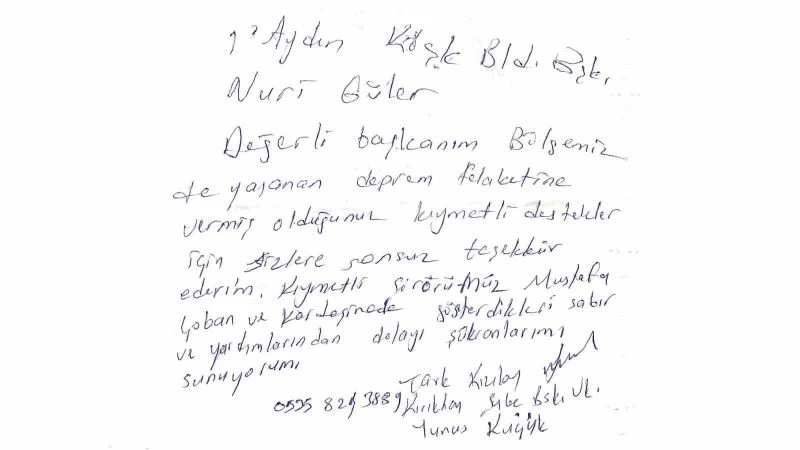 Aydın Köşk Bld. Bşk.
Nuri Güler
Değerli başkanım Bölgemiz
de yaşanan deprem felaketine
vermiş olduğunuz kıymetli destekler
için sizlere sonsuz teşekkür
ederim. Kıymetli Mustafa
Çoban ve Kardeşinede gösterdikleri sabır
ve yardımlarından dolayı şükranlarımı
sunuyorumı
Türk Kızılay
0535 829 3889 Kırıkhan Şube Bşk. Vk.
Yunus Küçük